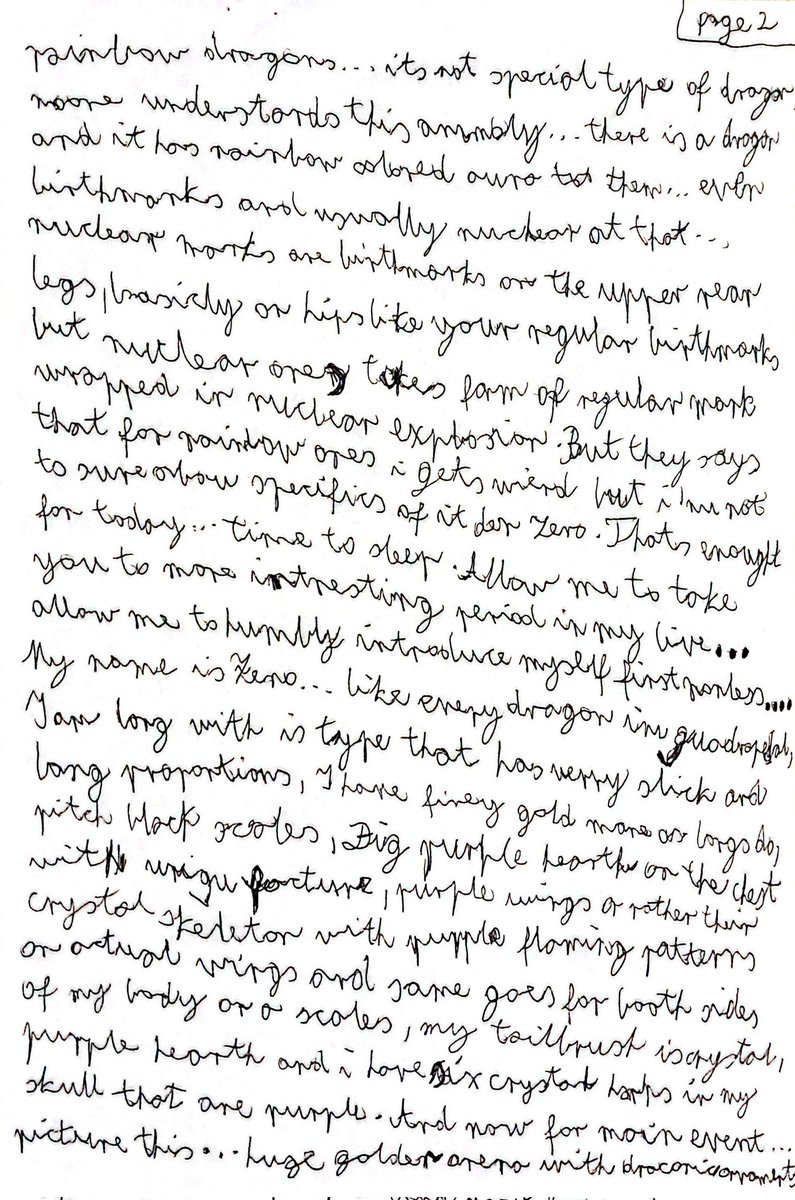 page 2
rainbow dragons... its not special type of dragon,
noone understands this anombly... there is a dragon
and it has rainbow colored aura them... even
birthmarks and usually nuclear at that...
nuclear marks are birthmarks on the upper rear
legs, basicly on hips like your regular birthmarks
but nuclear ones takes form of regular mark
wrapped in nuclear explosion. But they says
that for rainbow ones i gets wierd but i'm not
to sure obow specifics of it der Zero. Thats enought
for today... time to sleep. Allow me to take
you to more intresting period in my live...
allow me to humbly introduce myself first nonless....
My name is Zeno... like every dragon im quadropedal,
I am long with is type that has verry slick and
long proportions, I have firey gold mane as longs do,
pitch black scales, Big purple hearth on the chest
with uniqu, purple wings or rather their
crystal skeleton with purple flaming patterns
on actual wings and same goes for booth sides
of my body on a scales, my tailbrush is crystal,
purple hearth and i have six crystal in my
skull that are purple. And now for main event...
picture this... huge golden arena with draconic ornaments